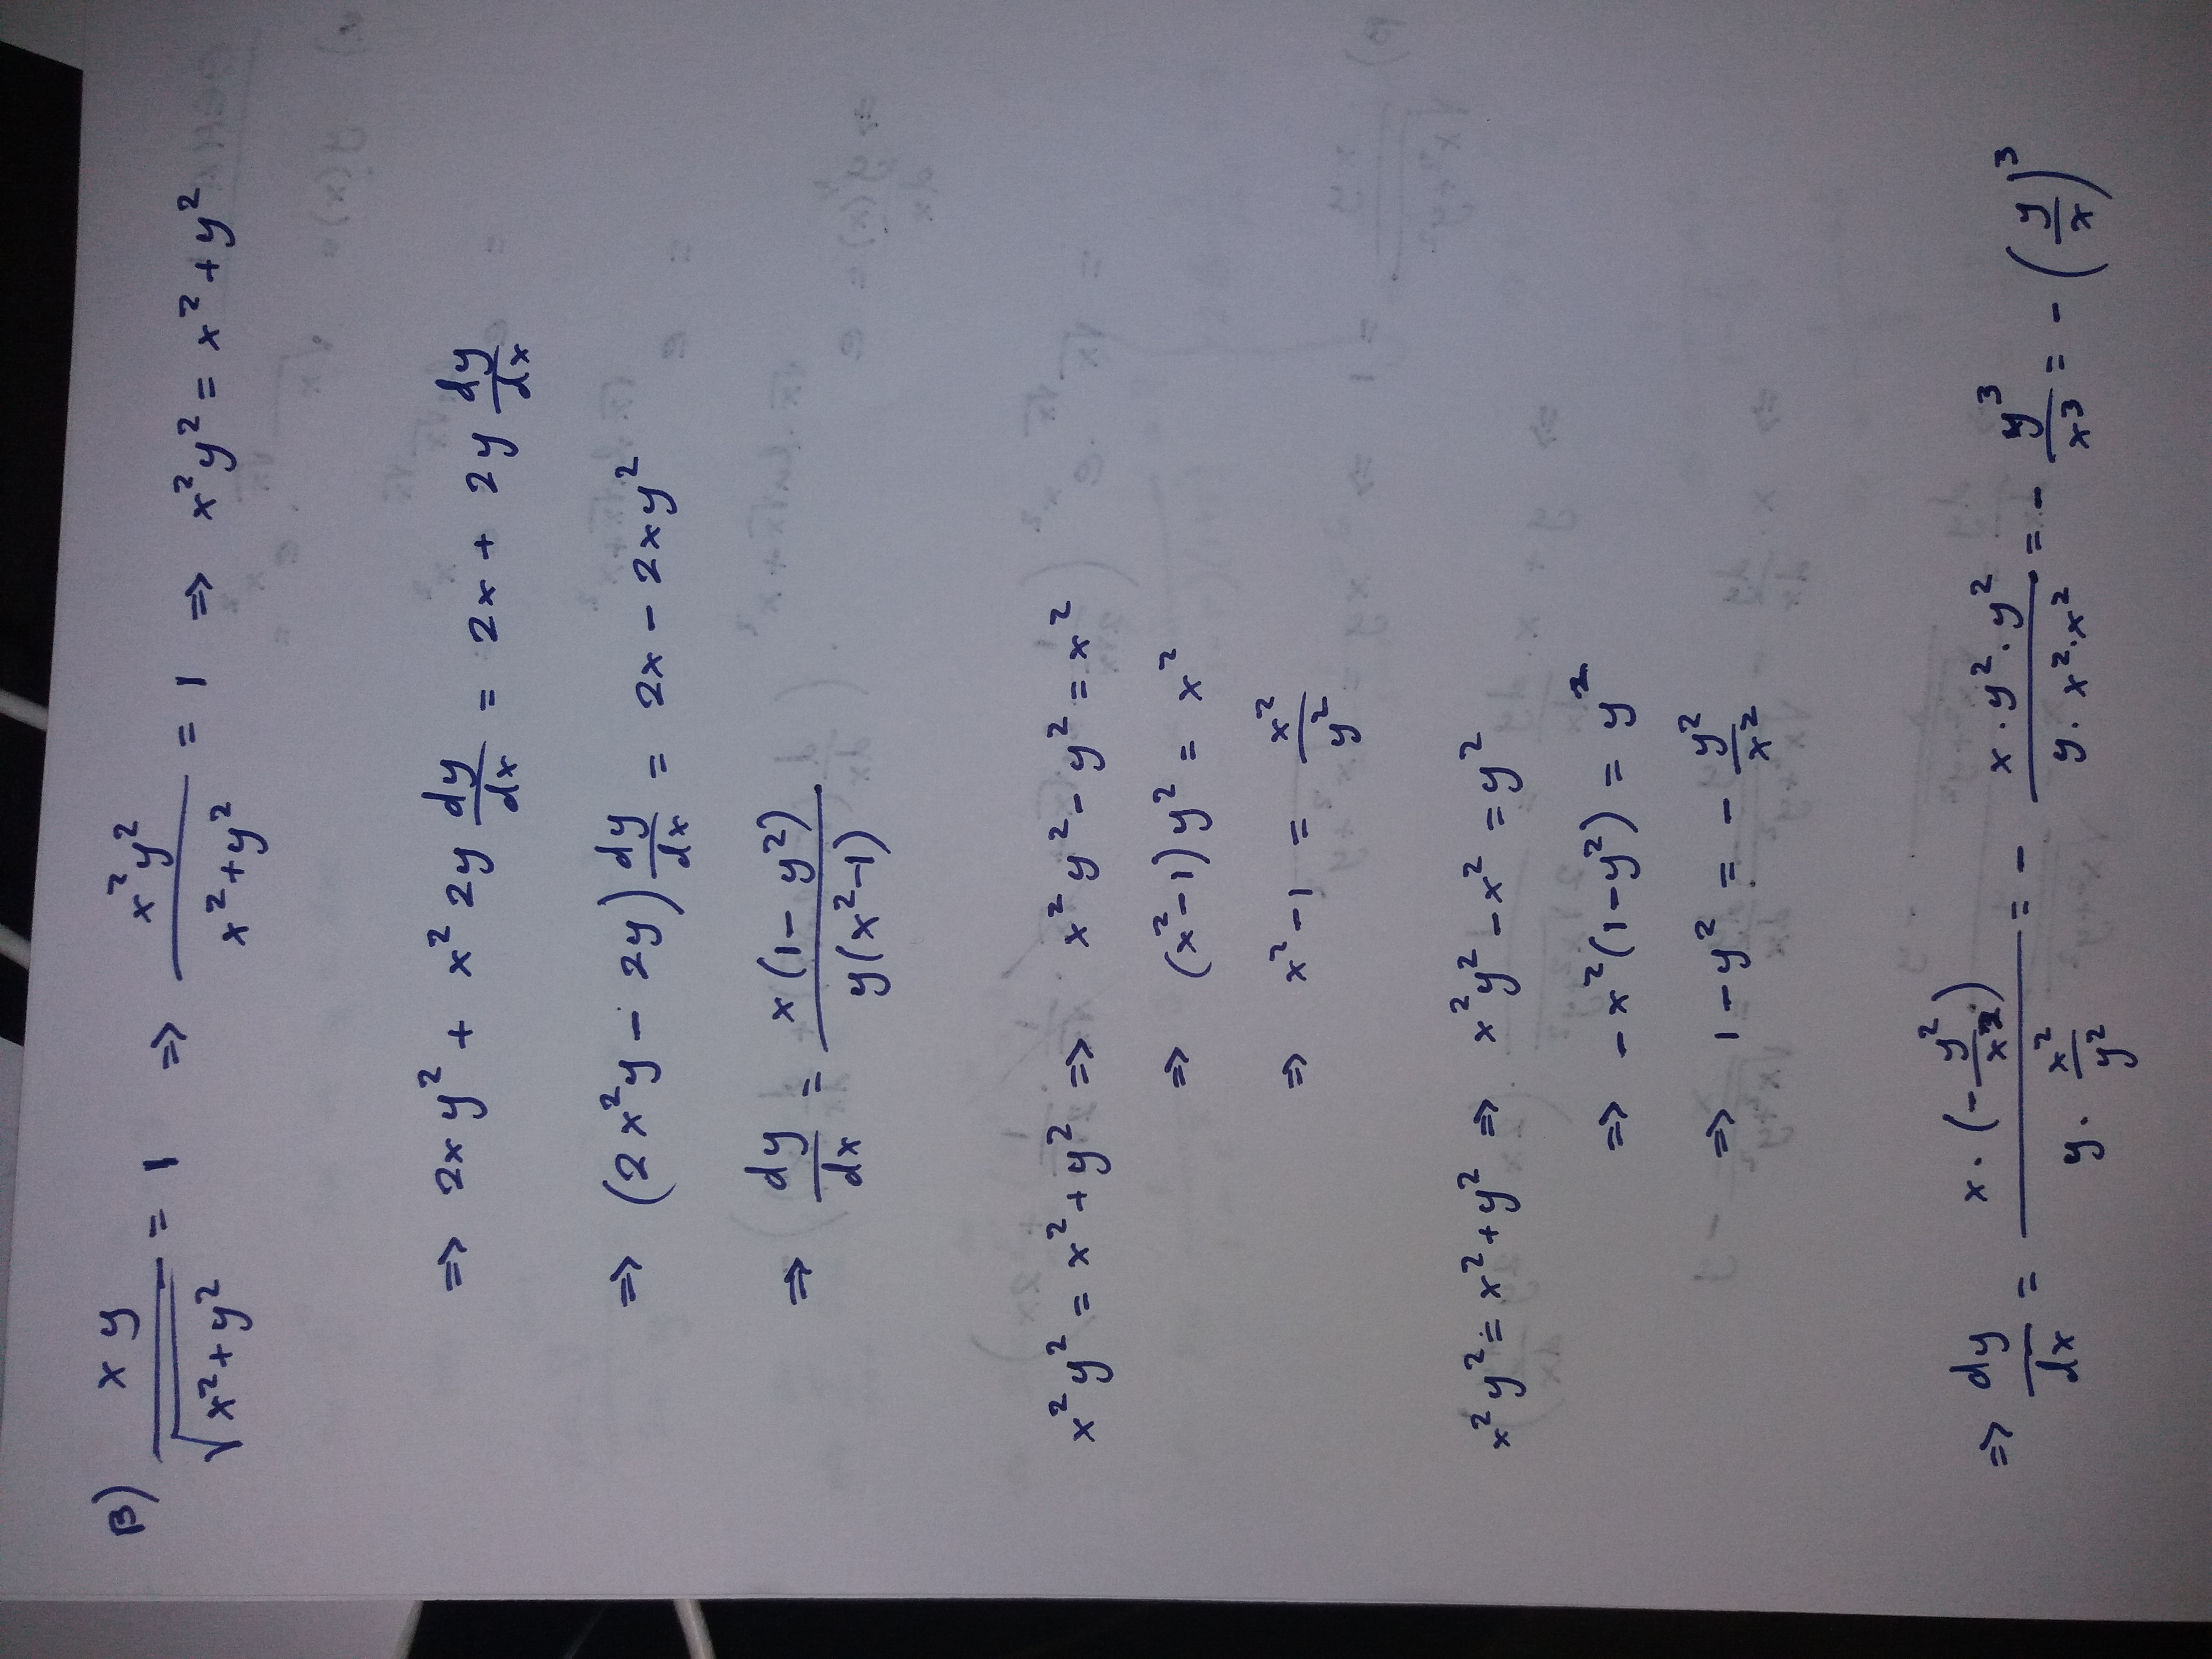 β) xy/√(x²+y²) = 1 ⇒ x²y²/(x²+y²) = 1 ⇒ x²y² = x²+y²
⇒ 2xy² + x² 2y dy/dx = 2x + 2y dy/dx
⇒ (2x²y - 2y) dy/dx = 2x - 2xy²
⇒ dy/dx = x(1-y²)/y(x²-1)
x²y² = x²+y² ⇒ x²y² - y² = x²
⇒ (x²-1)y² = x²
⇒ x²-1 = x²/y²
x²y² = x²+y² ⇒ x²y² - x² = y²
⇒ -x²(1-y²) = y²
⇒ 1-y² = - y²/x²
⇒ dy/dx = x·(-y²/x²)/(y·x²/y²) = - x·y²·y²/(y·x²·x²) = - y³/x³ = - (y/x)³